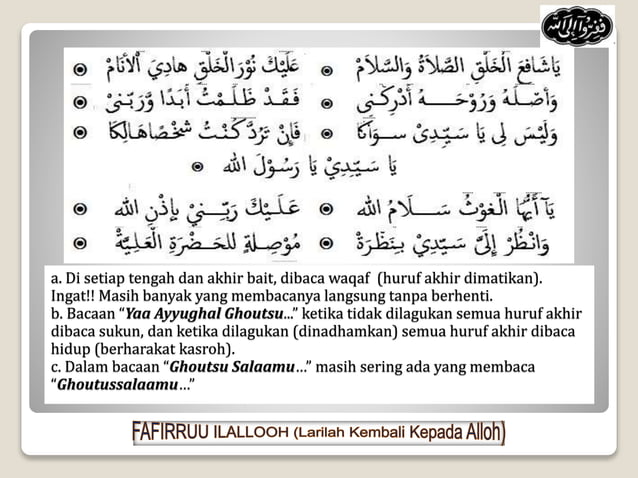 فَفِرُّوا إِلَى اللهِ
يَاشَافِعَ الْخَلْقِ الصَّلاَةُ وَالسَّلاَمْ ۞ عَلَيْكَ نُوْرَ الْخَلْقِ هَادِيَ الْأَنَامْ ۞
وَأَصْلَهُ وَرُوْحَهُ أَدْرِكْنِي ۞ فَقَدْ ظَلَمْتُ أَبَدًا وَّرَبِّنِيْ ۞
وَلَيْسَ لِي يَا سَيِّدِيْ سِوَاكَا ۞ فَإِنْ تَرُدَّ كُنْتُ شَخْصًا هَالِكَا ۞
يَا سَيِّدِيْ يَا رَسُوْلَ الله ۞
يَآ أَيُّهَا الْغَوْثُ سَلاَمُ الله ۞ عَلَيْكَ رَبِّنِيْ بِإِذْنِ الله ۞
وَانْظُرْ إِلَيَّ سَيِّدِيْ بِنَظْرَةْ ۞ مُوْصِلَةٍ لِلْحَضْرَةِ الْعَلِيَّةْ ۞
a. Di setiap tengah dan akhir bait, dibaca waqaf (huruf akhir dimatikan).
Ingat!! Masih banyak yang membacanya langsung tanpa berhenti.
b. Bacaan “Yaa Ayyughal Ghoutsu...” ketika tidak dilagukan semua huruf akhir
dibaca sukun, dan ketika dilagukan (dinadhamkan) semua huruf akhir dibaca
hidup (berharakat kasroh).
c. Dalam bacaan “Ghoutsu Salaamu…” masih sering ada yang membaca
“Ghoutussalaamu…”
FAFIRRUU ILALLOOH (Larilah Kembali Kepada Alloh)